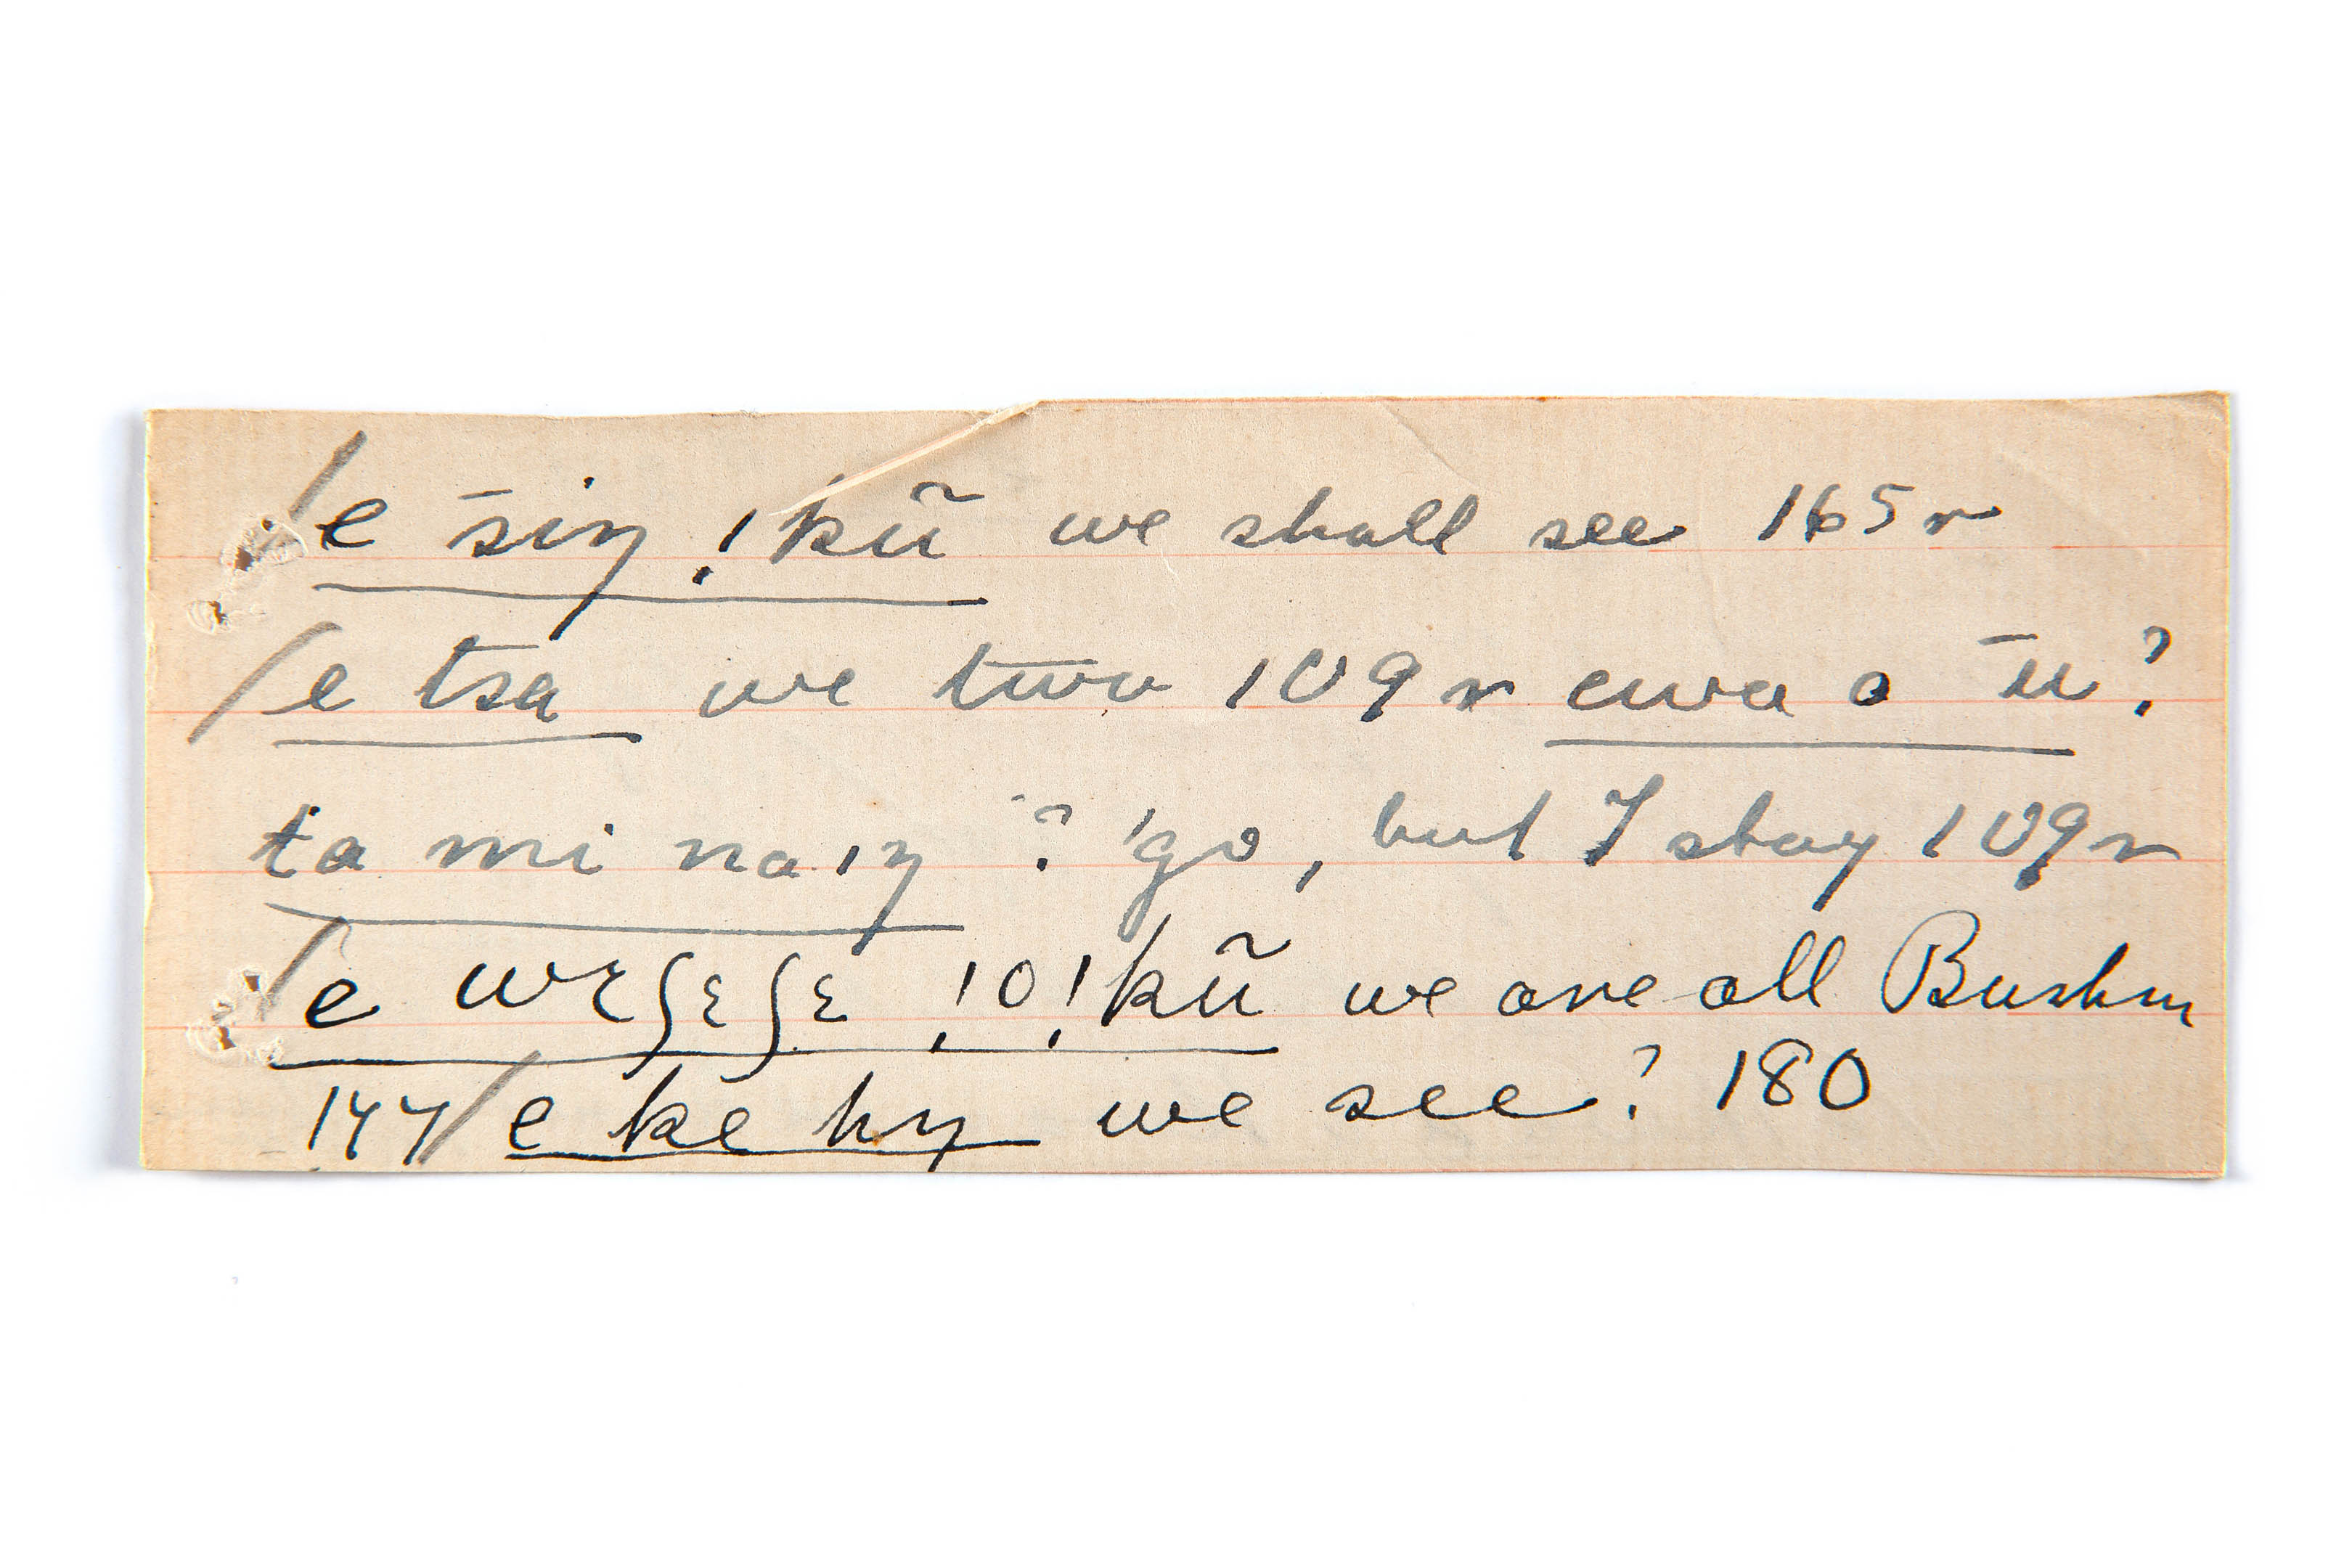 /e s̄iŋ !kũ̈ we shall see 165 r
/e tsa we two 109 r ewa o ū?
ta mi na ıŋ ? 'go, but I stay 109 r
/e wɛʃɛʃɛ !o!kũ we are all Bushm
144 /e ke hŋ we see? 180